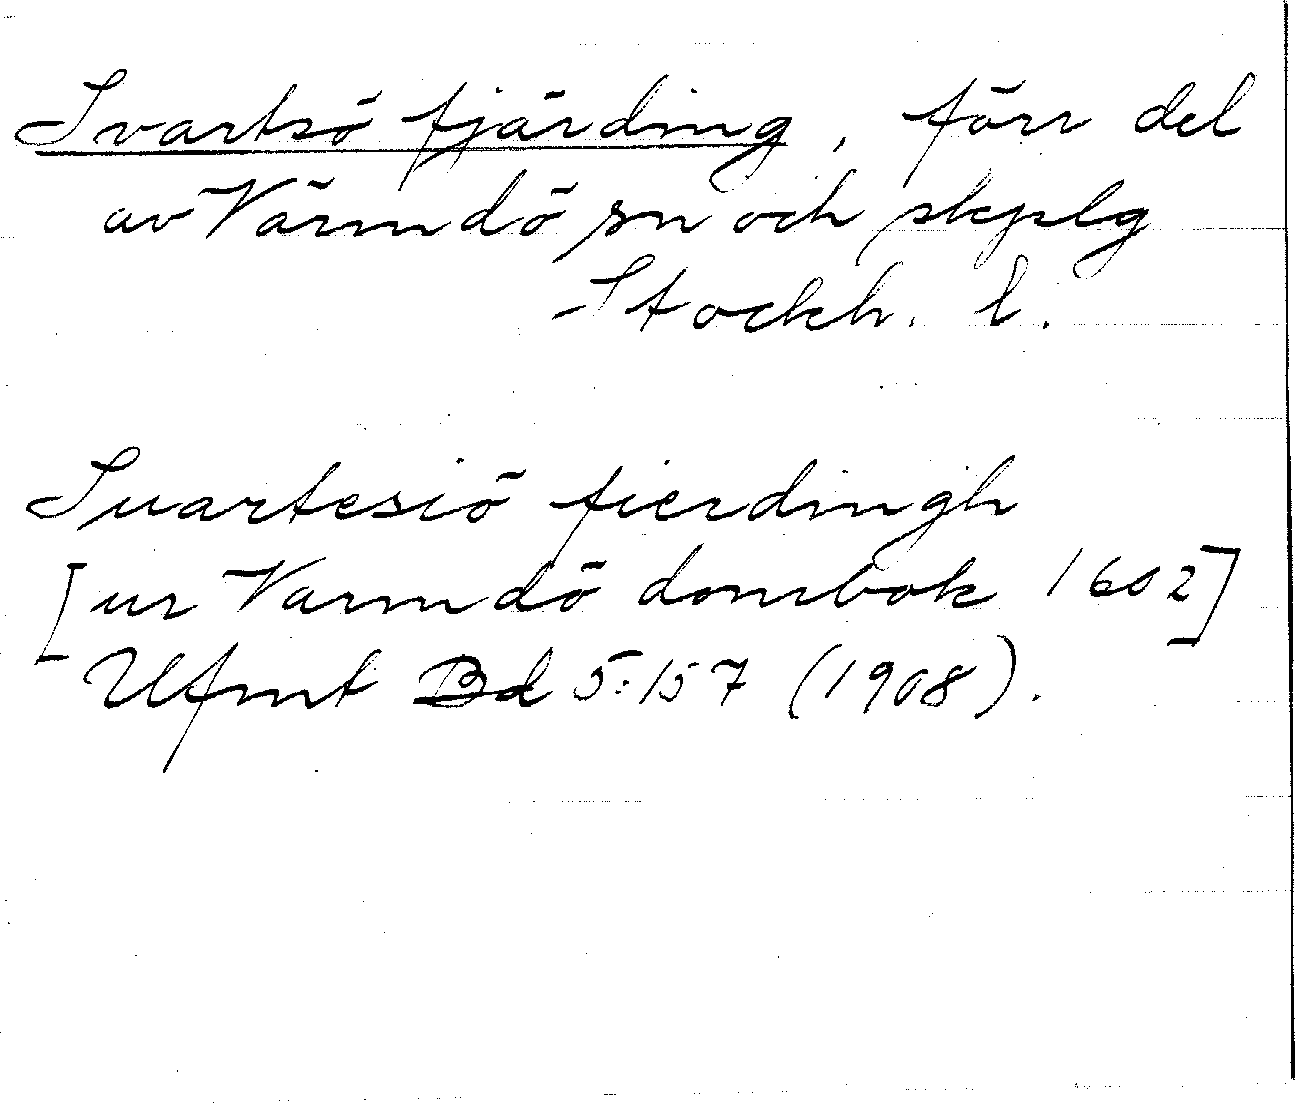 Svartsö fjärding, förr del
av Värmdö sn och skplg
Stockh. l.
Suartesiö fierdingh
[ur Varmdö dombok 1602]
Ufmt Bd 5:157 (1908).